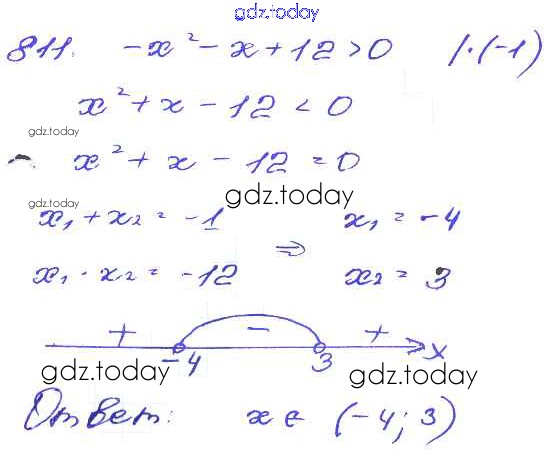 gdz.today
811. -x² - x + 12 > 0 | · (-1)
x² + x - 12 < 0
gdz.today
x² + x - 12 = 0
gdz.today
gdz.today
x₁ + x₂ = -1 x₁ = -4
⇒
x₁ · x₂ = -12 x₂ = 3
+ - +
-4 3 x
gdz.today gdz.today
Ответ: x ∈ (-4; 3)